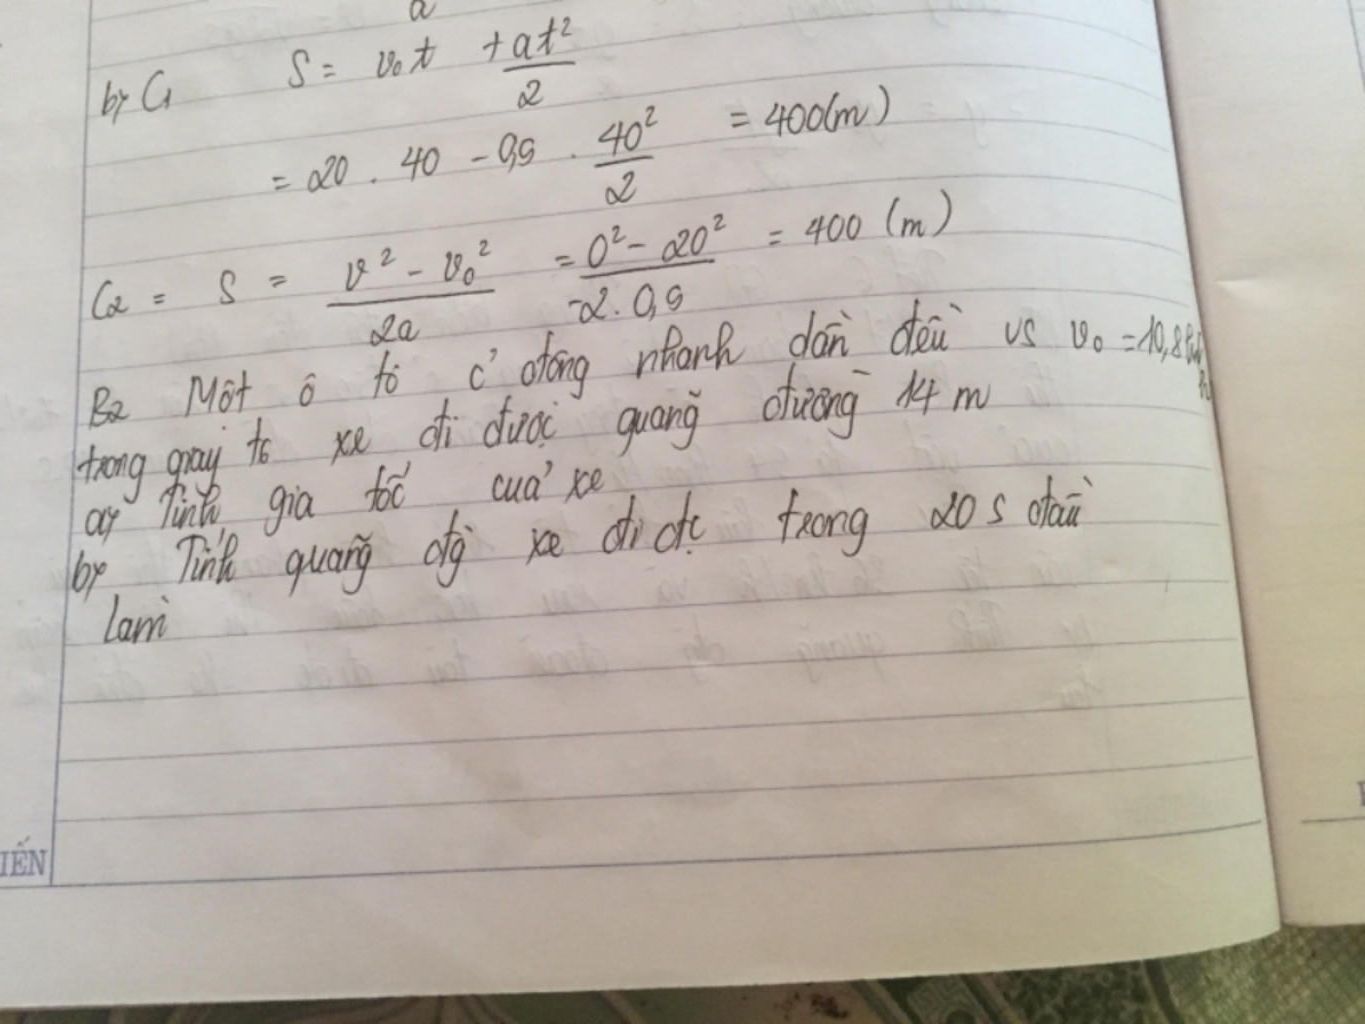 a
b, C1 S = v₀t + at²/2
= 20 . 40 - 0,5 . 40²/2 = 400(m)
C2 = S = v² - v₀²/2a = 0² - 20²/-2.0,5 = 400 (m)
B2 Một ô tô cđ động nhanh dần đều vs v₀ = 10,8km/h
trong giây t6 xe đi được quãng đường 14 m
a, Tính gia tốc của xe
b, Tính quãng đg xe đi đc trong 20 s đầu
Làm
IẾN